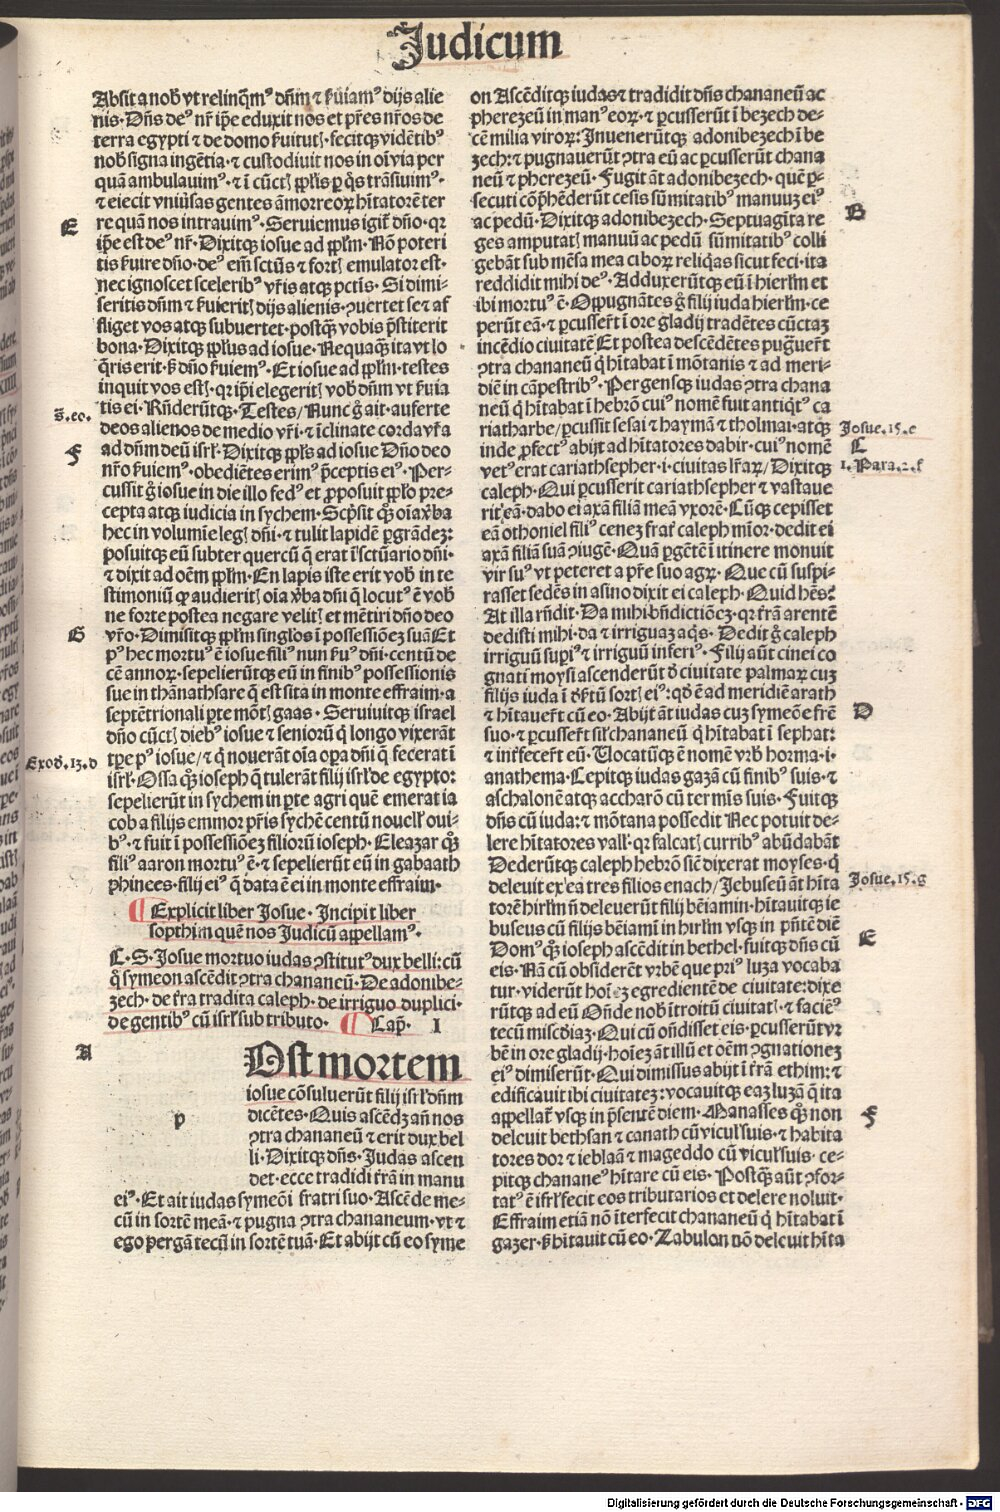 Judicum
Absit a nob̾ vt relinq̄m⁹ dñm ⁊ ẜuiam⁹ dijs alie
nis. Dñs de⁹ nr̄ ip̄e eduxit nos et pr̄es nr̄os de
terra egypti ⁊ de domo ẜuitut̉. fecitqꝫ vidētib⁹
nob̾ signa ingētia. ⁊ custodiuit nos in oī via per
quā ambulauim⁹. ⁊ ī cūct̉ pp̄lis ꝑ q̄s trāsiuim⁹.
⁊ eiecit vniũsas gentes āmorreoꝝ hītatorē ter
re quā nos intrauim⁹. Seruiemus igit̉ dño. qꝛ
E
ip̄e est de⁹ nr̄. Dixitqꝫ iosue ad pp̄lm. Nō poteri
tis ẜuire dño. de⁹ em̄ sctūs ⁊ fort̉ emulator est.
nec ignoscet scelerib⁹ vr̄is atqꝫ pctis. Si dimi-
seritis dñm ⁊ ẜuierit̉ dijs alienis. ꝯuertet se ⁊ af
fliget vos atqꝫ subuertet. postq̄ꝫ vobis p̄stiterit
bona. Dixitqꝫ pp̄lus ad iosue. Nequaq̄ꝫ ita vt lo
q̄ris erit. ẜ dño ẜuiem⁹. Et iosue ad pp̄lm. testes
inquit vos est̉. qꝛ ip̄i elegerit̉ vob̾ dñm vt ẜuia
tis ei. Rñderūtqꝫ. Testes/ Nunc ḡ ait. auferte
s̄. eo.
deos alienos de medio vr̄i. ⁊ īclinate corda vr̄a
ad dñm deū isrl̄. Dixitqꝫ pp̄ls ad iosue Dño deo
F
nr̄o ẜuiem⁹. obediētes erim⁹ p̄ceptis ei⁹. Per-
cussit ḡ iosue in die illo fed⁹ et ꝓposuit pp̄lo pre-
cepta atqꝫ iudicia in sychem. Scp̄sit qꝫ oīa v̾ba
hec in volumīe leg̉ dñi. ⁊ tulit lapidē ꝑgrādeꝫ:
posuitqꝫ eū subter quercū q̄ erat ī sctūario dñi.
⁊ dixit ad oēm pp̄lm. En lapis iste erit vob̾ in te
stimoniū ꝙ audierit̉ oīa v̾ba dñi q̄ locut⁹ ē vob̾
ne forte postea negare velit̉ et mētiri dño deo
vr̄o. Dimisitqꝫ pp̄lm singl̄os ī possessiōeꝫ suā Et
G
p⁹ hec mortu⁹ ē iosue fili⁹ nun ẜu⁹ dñi. centū de
cē annoꝝ. sepelierūtqꝫ eū in finib⁹ possessionis
sue in thānathsare q̄ est sita in monte effraim. a
septētrionali ꝑte mōt̉ gaas. Seruiuitqꝫ israel
dño cūct̉ dieb⁹ iosue ⁊ senioꝝ q̄ longo vixerāt
tꝑe p⁹ iosue/ ⁊ q̄ nouerāt oīa oꝑa dñi q̄ fecerat ī
Exod̾. 13. d
isrl̄. Ossa qꝫ ioseph q̄ tulerāt filij isrl̄ de egypto:
sepelierūt in sychem in ꝑte agri quē emerat ia
cob a filijs emmor pr̄is sychē centū nouell̉ oui-
b⁹. ⁊ fuit ī possessiōeꝫ filioꝝ ioseph. Eleazar qꝫ
fili⁹ aaron mortu⁹ ē. ⁊ sepelierūt eū in gabaath
phinees. filij ei⁹ q̄ data ē ei in monte effraim.
¶ Explicit liber Josue. Incipit liber
sopthim quē nos Judicū appellam⁹.
C. S. Josue mortuo iudas ꝯstitut⁹ dux belli: cū
q̄ symeon ascēdit ꝯtra chananeū. De adonibe-
zech. de tr̄a tradita caleph. de irriguo duplici.
de gentib⁹ cū isrl̄ sub tributo. ¶ Cap̄. I
A
p
Ost mortem
iosue cōsuluerūt filij isrl̄ dñm
dicētes. Quis ascēdꝫ añ nos
ꝯtra chananeū ⁊ erit dux bel
li. Dixitqꝫ dñs. Judas ascen
det. ecce tradidi tr̄ā in manu
ei⁹. Et ait iudas symeōi fratri suo. Ascēde me-
cū in sortē meā. ⁊ pugna ꝯtra chananeum. vt ⁊
ego pergā tecū in sortē tuā. Et abijt cū eo syme
on Ascēditqꝫ iudas ⁊ tradidit dñs chananeū ac
pherezeū in man⁹ eoꝝ. ⁊ ꝑcusserūt ī bezech de-
cē milia viroꝝ: Inuenerūtqꝫ adonibezech ī be
zech: ⁊ pugnauerūt ꝯtra eū ac ꝑcusserūt chana
neū ⁊ pherezeū. Fugit āt adonibezech. quē ꝑ-
secuti cōp̄hēderūt cesis sūmitatib⁹ manuuꝫ ei⁹
B
ac pedū. Dixitqꝫ adonibezech. Septuagīta re
ges amputat̉ manuū ac pedū sūmitatib⁹ colli
gebāt sub mēsa mea ciboꝝ reliq̄as sicut feci. ita
reddidit mihi de⁹. Adduxerūtqꝫ eū ī hierl̄m et
ibi mortu⁹ ē. Oppugnātes ḡ filij iuda hierl̄m. ce
perūt eā. ⁊ ꝑcusser̄t ī ore gladij tradētes cūctaꝫ
incēdio ciuitatē Et postea descēdētes pugūer̄t
ꝯtra chananeū q̄ hītabat ī mōtanis ⁊ ad meri-
diē in cāpestrib⁹. Pergensqꝫ iudas ꝯtra chana
neū q̄ hītabat ī hebrō cui⁹ nomē fuit antiqt̉ ca
riatharbe/ ꝑcussit sesai ⁊ haymā ⁊ tholmai. atqꝫ
Josue. 15. c
inde ꝓfect⁹ abijt ad hītatores dabir. cui⁹ nomē
C
vet⁹ erat cariathsepher. i. ciuitas lr̄aꝝ/ Dixitqꝫ
1. Para. 2. f
caleph. Qui ꝑcusserit cariathsepher ⁊ vastaue
rit eā. dabo ei axā filiā meā vxorē. Cūqꝫ cepisset
eā othoniel fili⁹ cenez frat̉ caleph mīor. dedit ei
axā filiā suā ꝯiugē. Quā ꝑgētē ī itinere monuit
vir su⁹ vt peteret a pr̄e suo agꝝ. Que cū suspi-
rasset sedēs in asino dixit ei caleph. Quid hēs?
At illa rñdit. Da mihi bñdictiōeꝫ. qꝛ tr̄ā arentē
dedisti mihi. da ⁊ irriguaꝫ aq̄s. Dedit ḡ caleph
irriguū supi⁹ ⁊ irriguū inferi⁹. Filij aūt cinei co
gnati moysi ascenderūt d̾ ciuitate palmaꝝ cuꝫ
filijs iuda ī d̾ẜtū sort̉ ei⁹: qd̾ ē ad meridiē arath
⁊ hītauer̄t cū eo. Abijt āt iudas cuꝫ symeōe fr̄ē
D
suo. ⁊ ꝑcusser̄t sil̉ chananeū q̄ hītabat ī sephat:
⁊ inẜfecer̄t eū. Uocatūqꝫ ē nomē vrb̾ horma. i.
anathema. Cepitqꝫ iudas gazā cū finib⁹ suis. ⁊
aschalonē atqꝫ accharō cū termīs suis. Fuitqꝫ
dñs cū iuda: ⁊ mōtana possedit Nec potuit de-
lere hītatores vall̉. qꝛ falcat̉ currib⁹ abūdabāt
Dederūtqꝫ caleph hebrō sic̄ dixerat moyses. q̄
deleuit ex ea tres filios enach/ Jebuseū āt hīta
Josue. 15. g
torē hirl̄m ñ deleuerūt filij bēiamin. hītauitqꝫ ie
buseus cū filijs bēiamī in hirl̄m vsqꝫ in pñtē diē
Dom⁹ qꝫ ioseph ascēdit in bethel. fuitqꝫ dñs cū
E
eis. Nā cū obsiderēt vrbē que pri⁹ luza vocaba
tur. viderūt hoīeꝫ egredientē de ciuitate: dixe
rūtqꝫ ad eū Oñde nob̾ ītroitū ciuitat̉. ⁊ faciē⁹
tecū mis̄cd̾iaꝫ. Qui cū oñdisset eis. ꝑcusserūt vr
bē in ore gladij. hoīeꝫ āt illū et oēm ꝯgnationeꝫ
ei⁹ dimiserūt. Qui dimissus abijt ī tr̄ā ethim: ⁊
edificauit ibi ciuitateꝫ: vocauitqꝫ eaꝫ luzā q̄ ita
appellat̉ vsqꝫ in p̄sentē diem. Manasses qꝫ non
F
deleuit bethsan ⁊ canath cū vicul̉ suis. ⁊ habita
tores dor ⁊ ieblaā ⁊ mageddo cū vicul̉ suis. ce-
pitqꝫ chanane⁹ hītare cū eis. Postq̄ꝫ aūt ꝯfor-
tat⁹ ē isrl̄ fecit eos tributarios et delere noluit.
Effraim etiā nō īterfecit chananeū q̄ hītabat ī
gazer. ẜ hītauit cū eo. Zabulon nō deleuit hīta
Digitalisierung gefördert durch die Deutsche Forschungsgemeinschaft - DFG